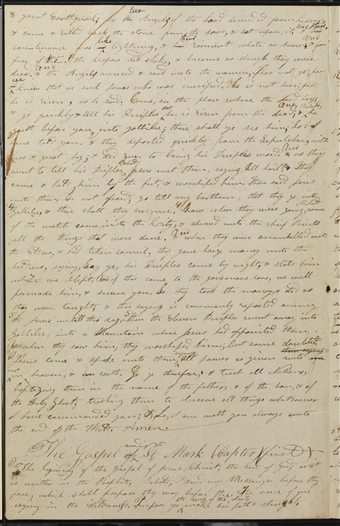 great Earthquake, for the Angel of the Lord decended from heaven
& came & roled back the stone from the door, & sat upon it,
countinance was like lightning, & his raiment white as snow; & for
fear the keepers did shake, & became as though they were
dead, & the Angels answerd & said unto the women, fear not ye; for
know that ye seek Jesus who was crucified. he is not here; for
he is risen, as he said, Come, see the place where the Lord lay
& go quickly & tell his Deciples he is risen from the dead, & he
goeth before you, into Gallilee; there shall ye see him, lo, I
have told you. & they departed quickly from the Sepulchre, with
fear & great joy; & did run to bring his Deciples word. & as they
went to tell his Deciples, Jesus met them, saying All hail, & they
came & held him by the feet, & worshiped him. Then said Jesus
unto them, be not afraid; go tell my brethren, that they go into
Gallilee, & there shall they see me. now when they were going, some
of the watch came into the City, & shewed unto the chief Priests
all the things that were done. & when they were assembled with
the Elders, & had taken council, they gave large money unto the
soldiers, saying, say ye, his Deciples came by night, & stole him
while we slept. & if this come to the governors ears, we will
persuade him, & secure you. So they took the money, & did as
they were taught; & this saying is commonly reported among
the Jews until this day. Then the Eleven Deciples went away into
Gallilee, into a Mountain where Jesus had appointed them
& when they saw him, they worshiped him; but some doubted
Jesus came & spake unto them, saying all power is given unto me
in heaven, & in earth. Go ye therefore, & teach all Nations,
baptizing them in the name of the father, & of the son, & of
the Holy Ghost; teaching them to observe all things whatsoever
I have commanded you; & lo, I am with you always unto
the end of the World. Amen
The Gospel of St Mark (Chapter first)
The begining of the gospel of Jesus Christ, the son of God; as it
is written in the Prophets, Behold, I send my Messenger before thy
face, which shall prepare thy way before thee. The voice of one
crying in the Wilderness, Prepare ye the way of the Lord, make his paths strait